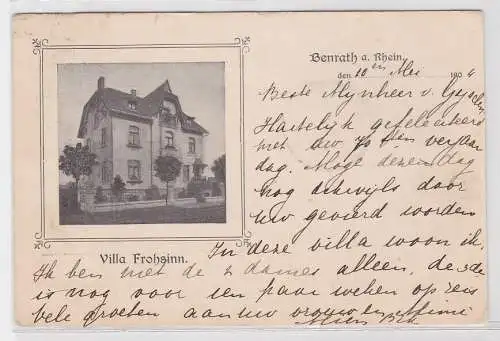 Benrath a. Rhein,
den 10en Mei 1904
Beste Mynheer v. Gyselen
Hartelyk gefeliciteerd
met uw 70sten verjaar
dag. Moge dezen dag
nog dikwijls door
uw gevierd worden
In deze villa woon ik.
Villa Frohsinn.
Ik ben met de 2 dames alleen, de 3de
is nog voor een paar weken op reis
vele groeten aan uw vrouw en Mimi
Mien